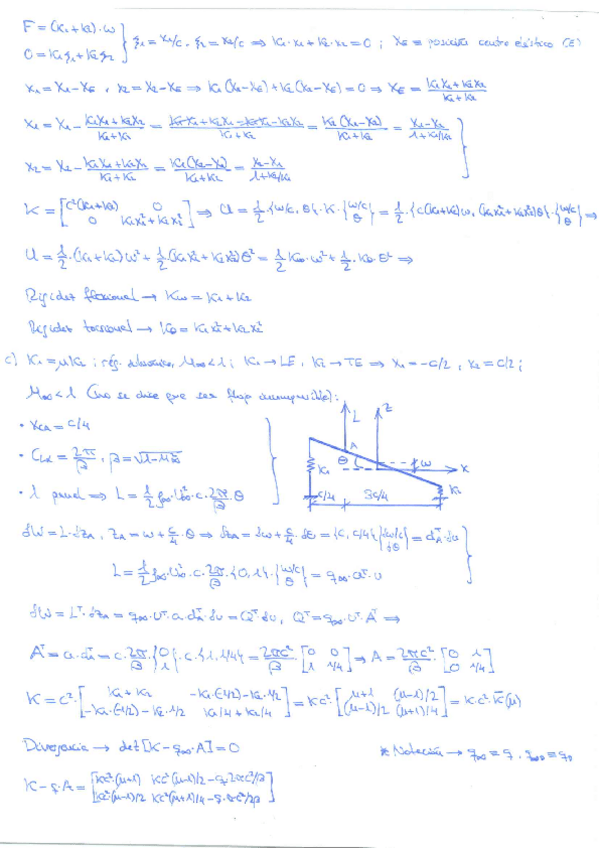 F = (K₁+K₂)·w
0 = K₁ξ₁+K₂ξ₂ } ξ₁ = x₁/c, ξ₂ = x₂/c ⇒ K₁·x₁+K₂·x₂ = 0 ; X_E = posición centro elástico (E)
x₁ = X₁-X_E, x₂ = X₂-X_E ⇒ K₁(X₁-X_E)+K₂(X₂-X_E) = 0 ⇒ X_E = (K₁X₁+K₂X₂)/(K₁+K₂)
x₁ = X₁ - (K₁X₁+K₂X₂)/(K₁+K₂) = (K₁X₁+K₂X₁-K₁X₁-K₂X₂)/(K₁+K₂) = K₂(X₁-X₂)/(K₁+K₂) = (X₁-X₂)/(1+K₁/K₂)
x₂ = X₂ - (K₁X₁+K₂X₂)/(K₁+K₂) = K₁(X₂-X₁)/(K₁+K₂) = (X₂-X₁)/(1+K₂/K₁)
K = [c²(K₁+K₂) 0; 0 K₁x₁²+K₂x₂²] ⇒ U = 1/2·{w/c, θ}·K·{w/c; θ} = 1/2·{c(K₁+K₂)w, (K₁x₁²+K₂x₂²)θ}·{w/c; θ} ⇒
U = 1/2·(K₁+K₂)w² + 1/2(K₁x₁²+K₂x₂²)θ² = 1/2 K_w·w² + 1/2·K_θ·θ² ⇒
Rigidez flexional → K_w = K₁+K₂
Rigidez torsional → K_θ = K₁x₁²+K₂x₂²
c) K₁ = μK₂ ; rég. subsónico, M∞<1 ; K₁→LE, K₂→TE ⇒ x₁ = -c/2, x₂ = c/2 ;
M∞<1 (no se dice que ser flujo incompresible):
• x_CA = c/4
• C_Lα = 2π/β, β = √(1-M∞²)
• 1 panel ⇒ L = 1/2 ρ∞·U∞²·c·2π/β·θ
L
z
A
θ
w
x
K₁
K₂
c/4
3c/4
δW = L·δz_A, z_A = w + c/4·θ ⇒ δz_A = δw + c/4·δθ = {c, c/4}{δw/c; δθ} = d_A^T·δu
L = 1/2 ρ∞·U∞²·c·2π/β·{0, 1}·{w/c; θ} = q∞·a^T·u
δW = L^T·δz_A = q∞·u^T·a·d_A^T·δu = Q^T·δu, Q^T = q∞·u^T·A^T ⇒
A^T = a·d_A^T = c·2π/β·{0; 1}·c·{1, 1/4} = 2πc²/β·[0 0; 1 1/4] ⇒ A = 2πc²/β·[0 1; 0 1/4]
K = c²·[K₁+K₂ -K₁·(-1/2)-K₂·1/2; -K₁·(-1/2)-K₂·1/2 K₁/4+K₂/4] = Kc²·[μ+1 (μ-1)/2; (μ-1)/2 (μ+1)/4] = K·c²·K̄(μ)
Divergencia → det[K-q∞·A] = 0
* Notación → q∞ ≡ q, q∞D ≡ q_D
K-q·A = [Kc²(μ+1) Kc²(μ-1)/2-q·2πc²/β; Kc²(μ-1)/2 Kc²(μ+1)/4-q·πc²/2β]